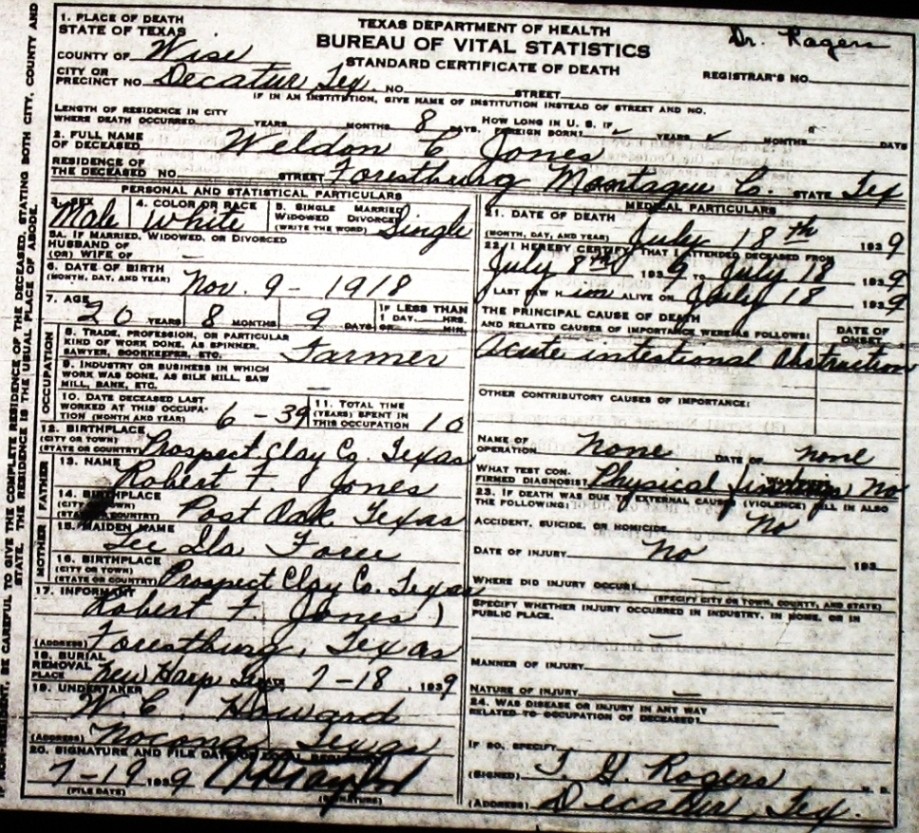 Dr. Rogers
TEXAS DEPARTMENT OF HEALTH
BUREAU OF VITAL STATISTICS
STANDARD CERTIFICATE OF DEATH
REGISTRAR'S NO.
1. PLACE OF DEATH
STATE OF TEXAS
COUNTY OF Wise
CITY OR PRECINCT NO Decatur Tex. NO. STREET
IF IN AN INSTITUTION, GIVE NAME OF INSTITUTION INSTEAD OF STREET AND NO.
LENGTH OF RESIDENCE IN CITY WHERE DEATH OCCURRED YEARS MONTHS 8 DAYS. HOW LONG IN U. S. IF FOREIGN BORN? YEARS MONTHS DAYS
2. FULL NAME OF DECEASED Weldon C Jones
RESIDENCE OF THE DECEASED NO. STREET Forestburg Montague Co. STATE Tex
PERSONAL AND STATISTICAL PARTICULARS
3. SEX Male
4. COLOR OR RACE White
5. SINGLE MARRIED WIDOWED DIVORCED (WRITE THE WORD) Single
5A. IF MARRIED, WIDOWED, OR DIVORCED
HUSBAND OF
(OR) WIFE OF
6. DATE OF BIRTH (MONTH, DAY, AND YEAR) Nov. 9 - 1918
7. AGE 20 YEARS 8 MONTHS 9 DAYS IF LESS THAN 1 DAY HRS. OR MIN.
OCCUPATION
8. TRADE, PROFESSION, OR PARTICULAR KIND OF WORK DONE, AS SPINNER, SAWYER, BOOKKEEPER, ETC. Farmer
9. INDUSTRY OR BUSINESS IN WHICH WORK WAS DONE, AS SILK MILL, SAW MILL, BANK, ETC.
10. DATE DECEASED LAST WORKED AT THIS OCCUPATION (MONTH AND YEAR) 6 - 39
11. TOTAL TIME (YEARS) SPENT IN THIS OCCUPATION 10
12. BIRTHPLACE (CITY OR TOWN) (STATE OR COUNTRY) Prospect Clay Co. Texas
FATHER
13. NAME Robert F. Jones
14. BIRTHPLACE (CITY OR TOWN) (STATE OR COUNTRY) Post Oak Texas
MOTHER
15. MAIDEN NAME
16. BIRTHPLACE (CITY OR TOWN) (STATE OR COUNTRY) Prospect Clay Co. Texas
17. INFORMANT Robert F. Jones
(ADDRESS) Forestburg, Texas
18. BURIAL REMOVAL
PLACE New Harp DATE 7-18, 1939
19. UNDERTAKER W. E. Howard
(ADDRESS) Nocona Texas
20. SIGNATURE AND FILE DATE OF LOCAL REGISTRAR
7-19 1939
(FILE DATE) (SIGNATURE)
MEDICAL PARTICULARS
21. DATE OF DEATH (MONTH, DAY, AND YEAR) July 18th 1939
22. I HEREBY CERTIFY THAT I ATTENDED DECEASED FROM
July 8th 1939 TO July 18 1939
I LAST SAW H im ALIVE ON July 18 1939
THE PRINCIPAL CAUSE OF DEATH AND RELATED CAUSES OF IMPORTANCE WERE AS FOLLOWS:
DATE OF ONSET
Acute intestional Abstraction
OTHER CONTRIBUTORY CAUSES OF IMPORTANCE:
NAME OF OPERATION None DATE OF none
WHAT TEST CONFIRMED DIAGNOSIS? Physical findings No
23. IF DEATH WAS DUE TO EXTERNAL CAUSES (VIOLENCE) FILL IN ALSO THE FOLLOWING:
ACCIDENT, SUICIDE, OR HOMICIDE No
DATE OF INJURY No 193
WHERE DID INJURY OCCUR?
(SPECIFY CITY OR TOWN, COUNTY, AND STATE)
SPECIFY WHETHER INJURY OCCURRED IN INDUSTRY, IN HOME, OR IN PUBLIC PLACE.
MANNER OF INJURY
NATURE OF INJURY
24. WAS DISEASE OR INJURY IN ANY WAY RELATED TO OCCUPATION OF DECEASED?
IF SO, SPECIFY
(SIGNED) T. G. Rogers M. D.
(ADDRESS) Decatur, Tex.
BE CAREFUL TO GIVE THE COMPLETE RESIDENCE OF THE DECEASED, STATING BOTH CITY, COUNTY AND STATE. THE RESIDENCE IS THE USUAL PLACE OF ABODE.